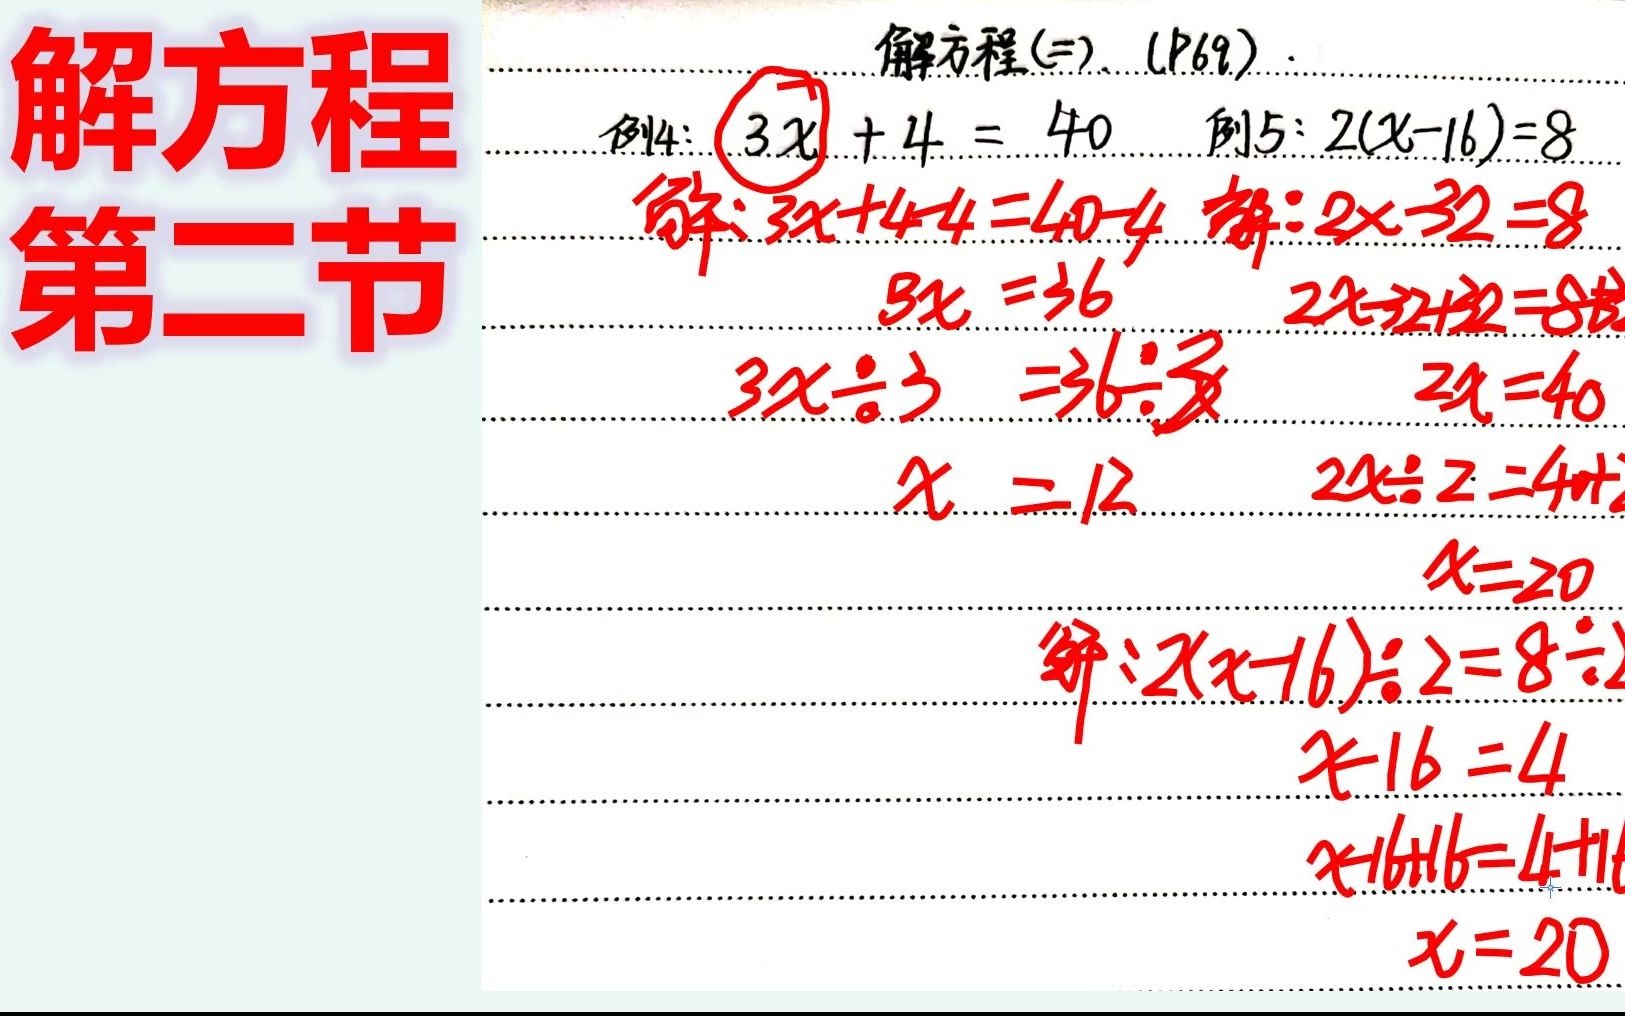 解方程
第二节
解方程(二). (P69).
例4: 3x + 4 = 40
解: 3x+4-4=40-4
3x =36
3x÷3 =36÷3
x =12
例5: 2(x-16)=8
解: 2x-32=8
2x-32+32=8+3
2x=40
2x÷2=40÷2
x=20
解: 2(x-16)÷2=8÷2
x-16=4
x-16+16=4+16
x=20